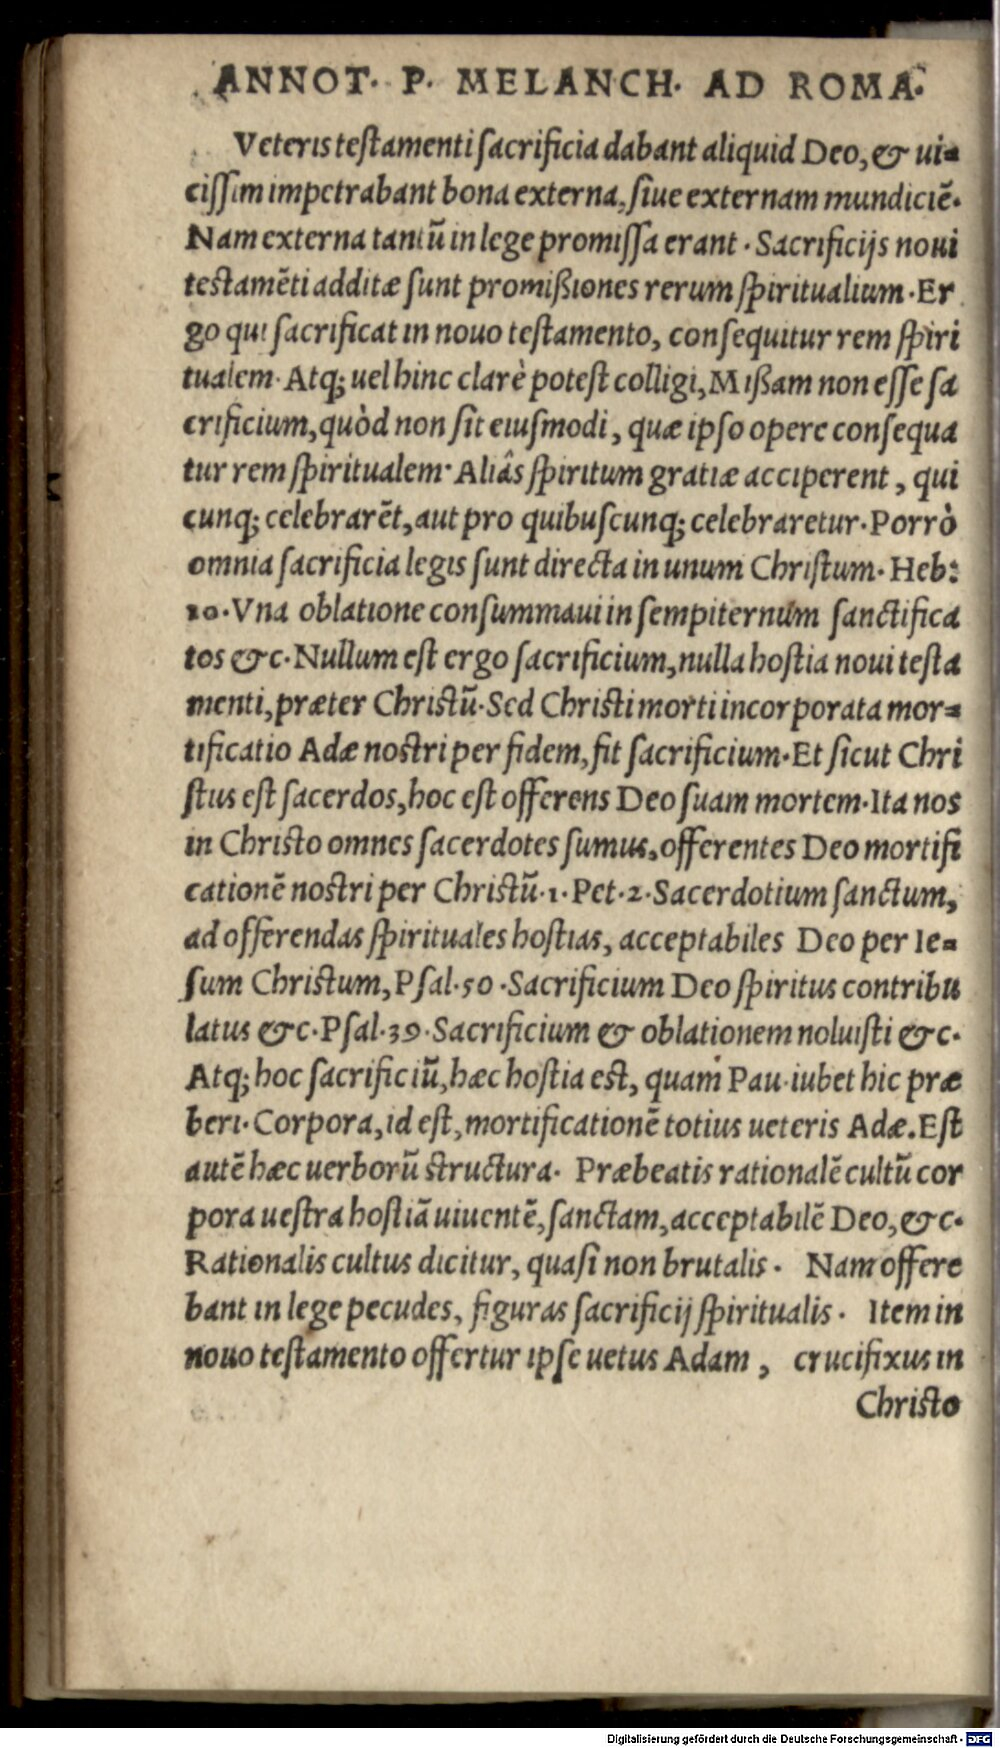 ANNOT. P. MELANCH. AD ROMA.
Veteris teſtamenti ſacrificia dabant aliquid Deo, & ui-
ciſſim impetrabant bona externa, ſiue externam mundiciē.
Nam externa tantū in lege promiſſa erant. Sacrificijs noui
teſtamēti additæ ſunt promißiones rerum ſpiritualium. Er
go qui ſacrificat in nouo teſtamento, conſequitur rem ſpiri
tualem. Atq; uel hinc clarè poteſt colligi, Mißam non eſſe ſa
crificium, quòd non ſit eiuſmodi, quæ ipſo opere conſequa
tur rem ſpiritualem. Aliâs ſpiritum gratiæ acciperent, qui
cunq; celebrarēt, aut pro quibuſcunq; celebraretur. Porrò
omnia ſacrificia legis ſunt directa in unum Chriſtum. Heb:
10. Vna oblatione conſummaui in ſempiternum ſanctifica
tos &c. Nullum eſt ergo ſacrificium, nulla hoſtia noui teſta
menti, præter Chriſtū. Sed Chriſti morti incorporata mor-
tificatio Adæ noſtri per fidem, fit ſacrificium. Et ſicut Chri
ſtus eſt ſacerdos, hoc eſt offerens Deo ſuam mortem. Ita nos
in Chriſto omnes ſacerdotes ſumus, offerentes Deo mortifi
cationē noſtri per Chriſtū. 1. Pet. 2. Sacerdotium ſanctum,
ad offerendas ſpirituales hoſtias, acceptabiles Deo per Ie-
ſum Chriſtum, Pſal. 50. Sacrificium Deo ſpiritus contribu
latus &c. Pſal. 39. Sacrificium & oblationem noluiſti &c.
Atq; hoc ſacrificiū, hæc hoſtia eſt, quam Pau. iubet hic præ
beri. Corpora, id eſt, mortificationē totius ueteris Adæ. Eſt
autē hæc uerborū ſtructura. Præbeatis rationalē cultū cor
pora ueſtra hoſtiā uiuentē, ſanctam, acceptabilē Deo, &c.
Rationalis cultus dicitur, quaſi non brutalis. Nam offere
bant in lege pecudes, figuras ſacrificij ſpiritualis. Item in
nouo teſtamento offertur ipſe uetus Adam, crucifixus in
Chriſto
Digitalisierung gefördert durch die Deutsche Forschungsgemeinschaft - DFG